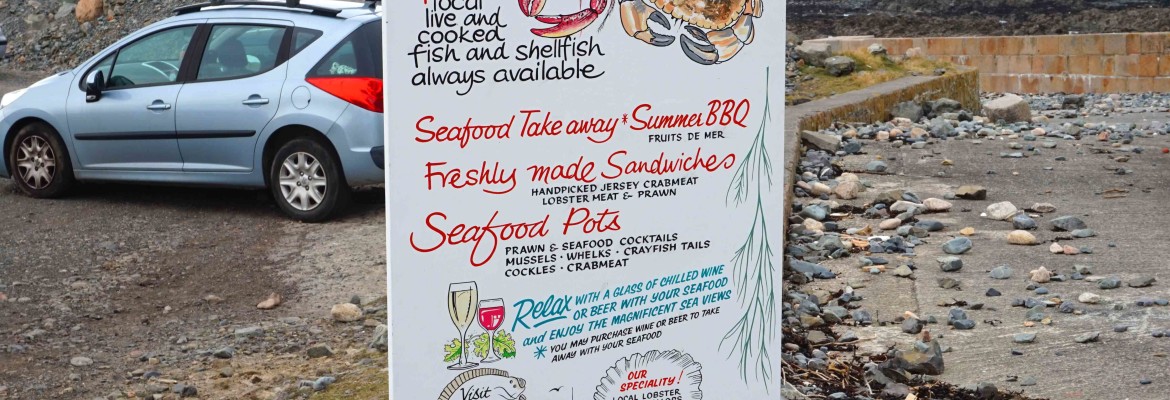 local
live and
cooked
fish and shellfish
always available
Seafood Take away * Summer BBQ
FRUITS DE MER
Freshly made Sandwiches
HANDPICKED JERSEY CRABMEAT
LOBSTER MEAT & PRAWN
Seafood Pots
PRAWN & SEAFOOD COCKTAILS
MUSSELS · WHELKS · CRAYFISH TAILS
COCKLES · CRABMEAT
Relax WITH A GLASS OF CHILLED WINE
OR BEER WITH YOUR SEAFOOD
and ENJOY THE MAGNIFICENT SEA VIEWS
* YOU MAY PURCHASE WINE OR BEER TO TAKE
AWAY WITH YOUR SEAFOOD
Visit
OUR
SPECIALITY!
LOCAL LOBSTER